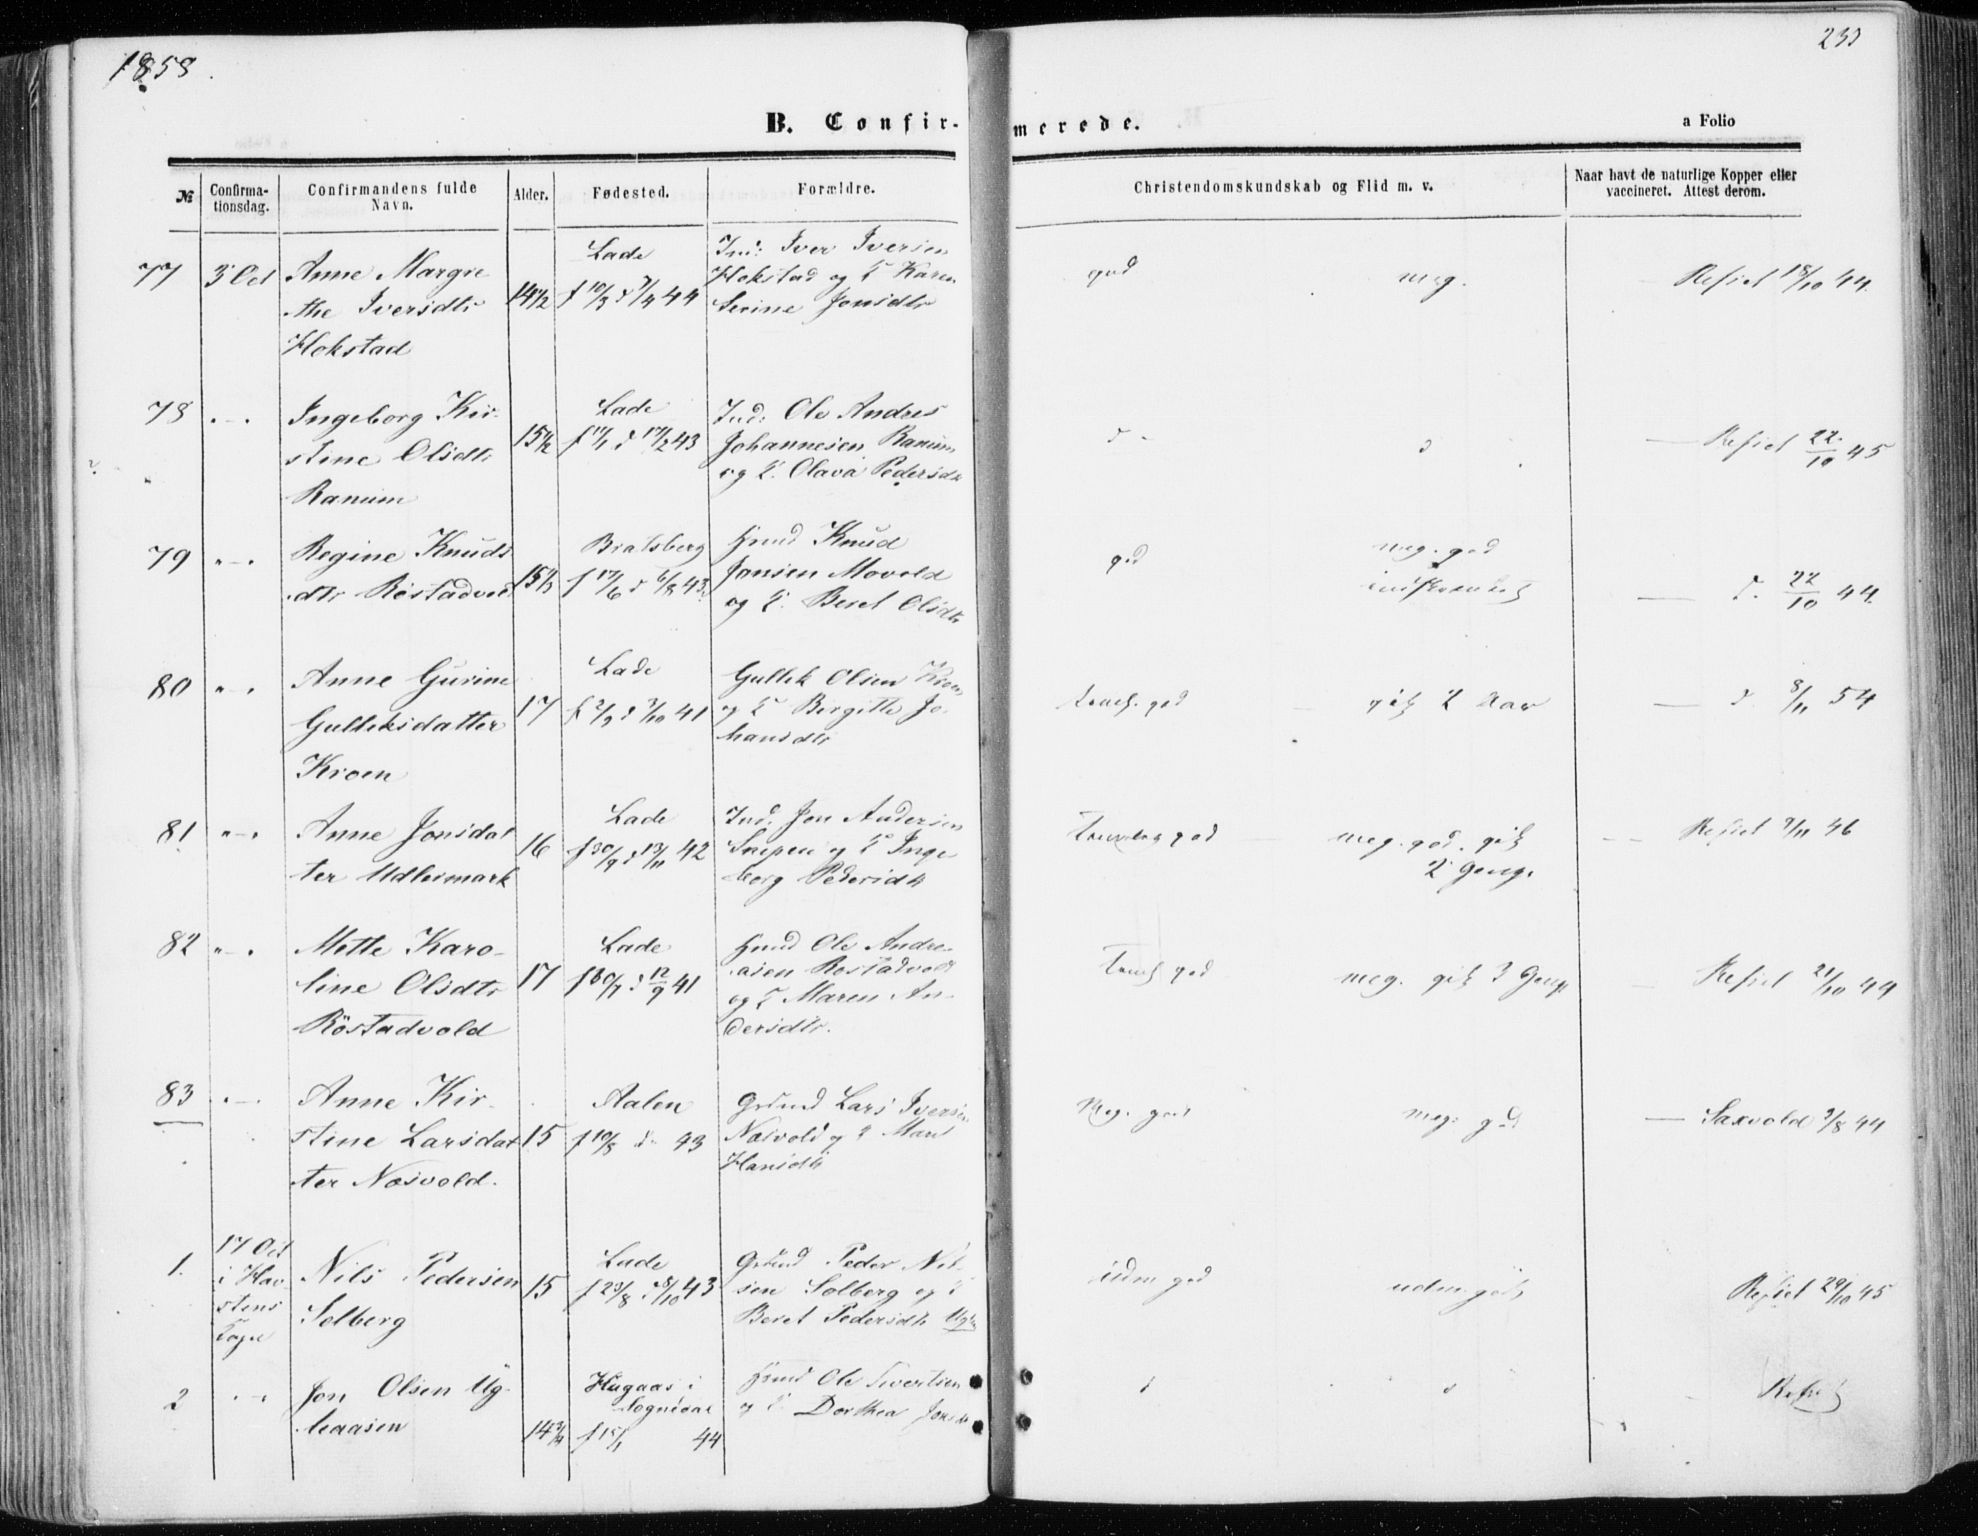 1858.
233
B. Confir-
merede.
a Folio
№
Confirma-
tionsdag.
Confirmandens fulde
Navn.
Alder.
Fødested.
Forældre.
Christendomskundskab og Flid m. v.
Naar havt de naturlige Kopper eller
vaccineret. Attest derom.
77 3 Oct Anne Margre
the Iversdtr
Hokstad
14½
Lade
f 10/3 d 7/4 44
Ind: Iver Iversen
Hokstad og K Karen
Serine Jonsdtr
god
meg.
Refset 18/10 44.
78 " - " Ingeborg Kir-
stine Olsdtr
Ranum
15½
Lade
f 17/1 d 19/2 43
Ind: Ole Andres
Johannesen Ranum
og K. Olava Pedersdtr
d -
d
Refset 22/10 45
79 " - " Regine Knuds
dtr Röstadvold
15½
Bratsberg
f 17/6 d 6/8 43
Hmd Knud
Jonsen Movold
og K. Beret Olsdtr
god
meg. god
d. 22/10 44.
80 " - " Anne Gurine
Gulleksdatter
Kroen
17
Lade
f 2/9 d 3/10 41
Gullik Olsen Kroen
og K Birgitte Jo-
hansdtr
temel. god
gik 2 Aar
d. 8/11 54
81 " - " Anne Jonsdat
ter Udleirmark
16
Lade
f 30/9 d 13/11 42
Ind. Jon Andersen
og K Inge
borg Pedersdtr
god
meg. god. gik
2 Gang.
Refset 9/11 46
82 " - " Mette Karo-
line Olsdtr
Röstadvold
17
Lade
f 30/7 d 12/9 41
Hmd Ole Andre-
asen Rostadvold
og K Maren An-
dersdtr.
temel god
meg. gik 3 Gange
Refset 21/10 44
83 " - " Anne Kir-
stine Larsdat
ter Næsvold.
15
Aalen
f 10/8 d - 43
Grdmd Lars Iversen
Næsvold og K Marit
Hansdtr
Meg. god
meg. god
Saxvold 9/8 44
1. 17 Oct
i Hav
stens
Sogn
Nils Pedersen
Solberg
15
Lade
f 23/8 d 8/10 43
Grdmd Peder Nil-
sen Solberg og K
Beret Pedersdtr
udm god
Refset 29/10 45
2 " - " Jon Olsen Ug-
leaasen
14¾
Hugaas i
Sognedal
f 15/1 44
Hmd Ole Sivertsen
og K. Dorthea Jonsdtr
d
d
Refset